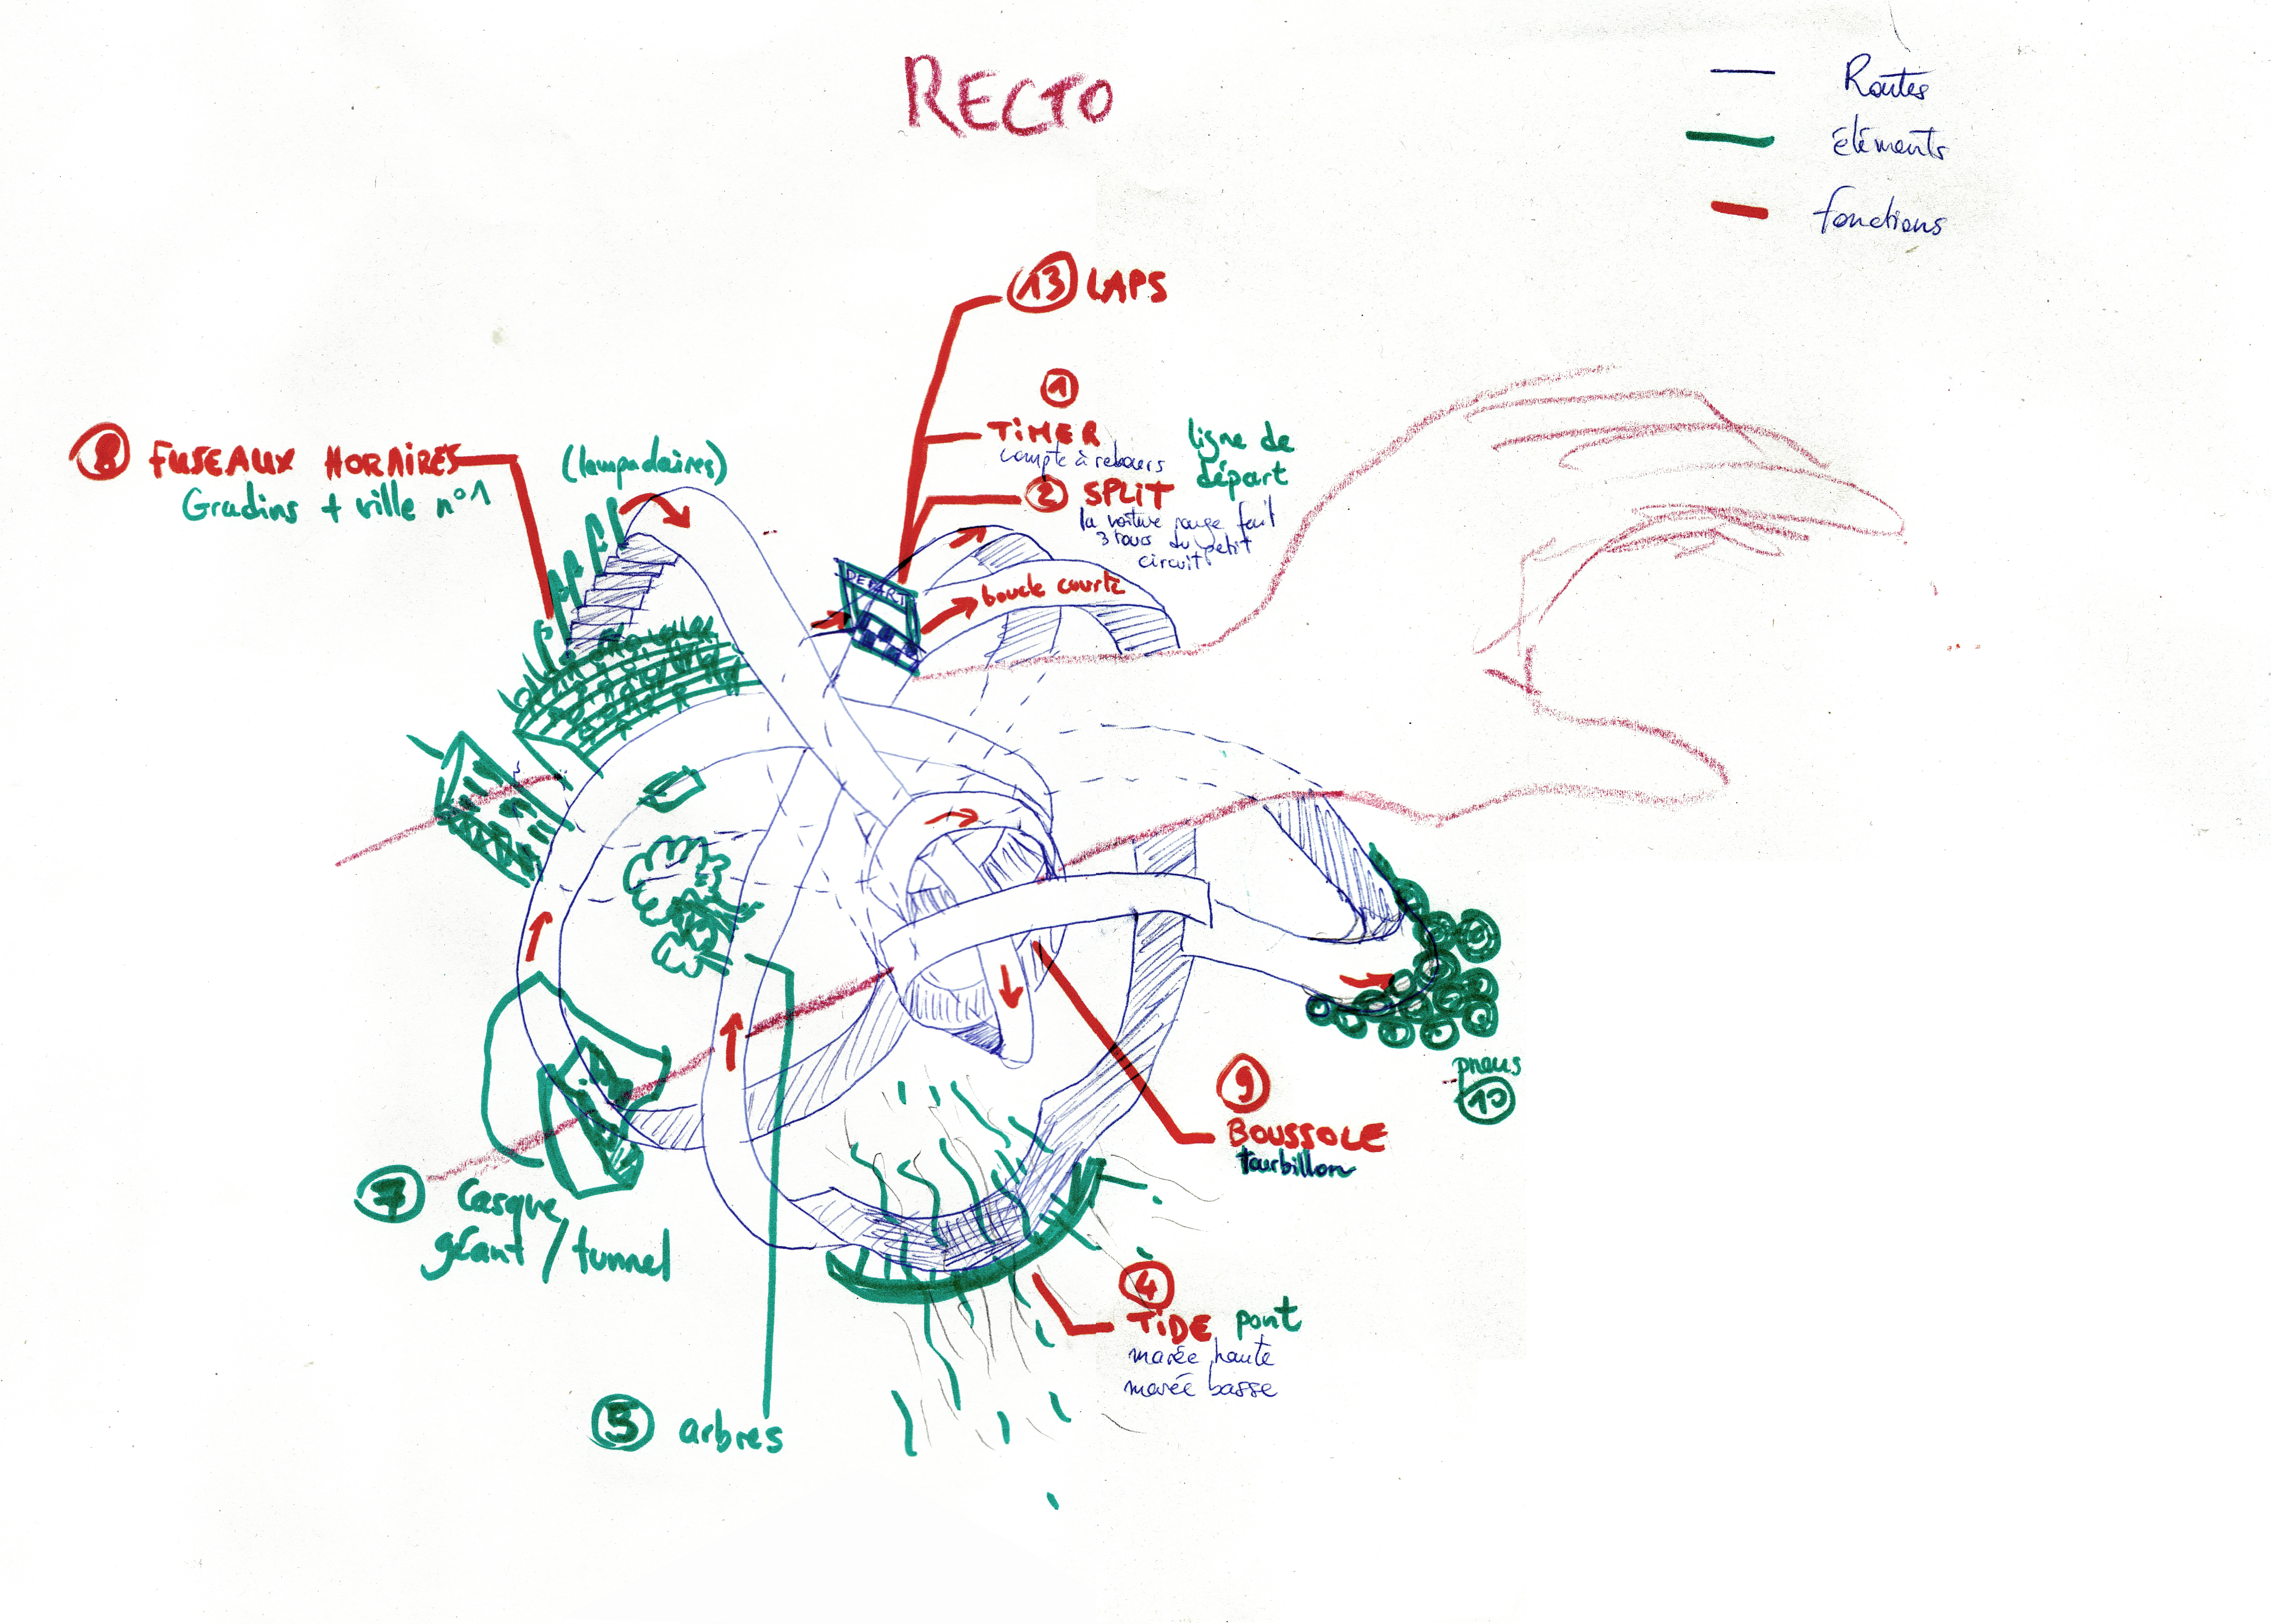 RECTO
Routes
éléments
fonctions
13 LAPS
1
TIMER
compte à rebours
ligne de
départ
2 SPLIT
la voiture rouge fait
3 tours du petit
circuit
8 FUSEAUX HORAIRES
Gradins + ville n°1
(lampadaires)
DEPART
boucle courte
pneus
10
9
BOUSSOLE
tourbillon
7 Casque
géant / tunnel
4
TIDE pont
marée haute
marée basse
5 arbres